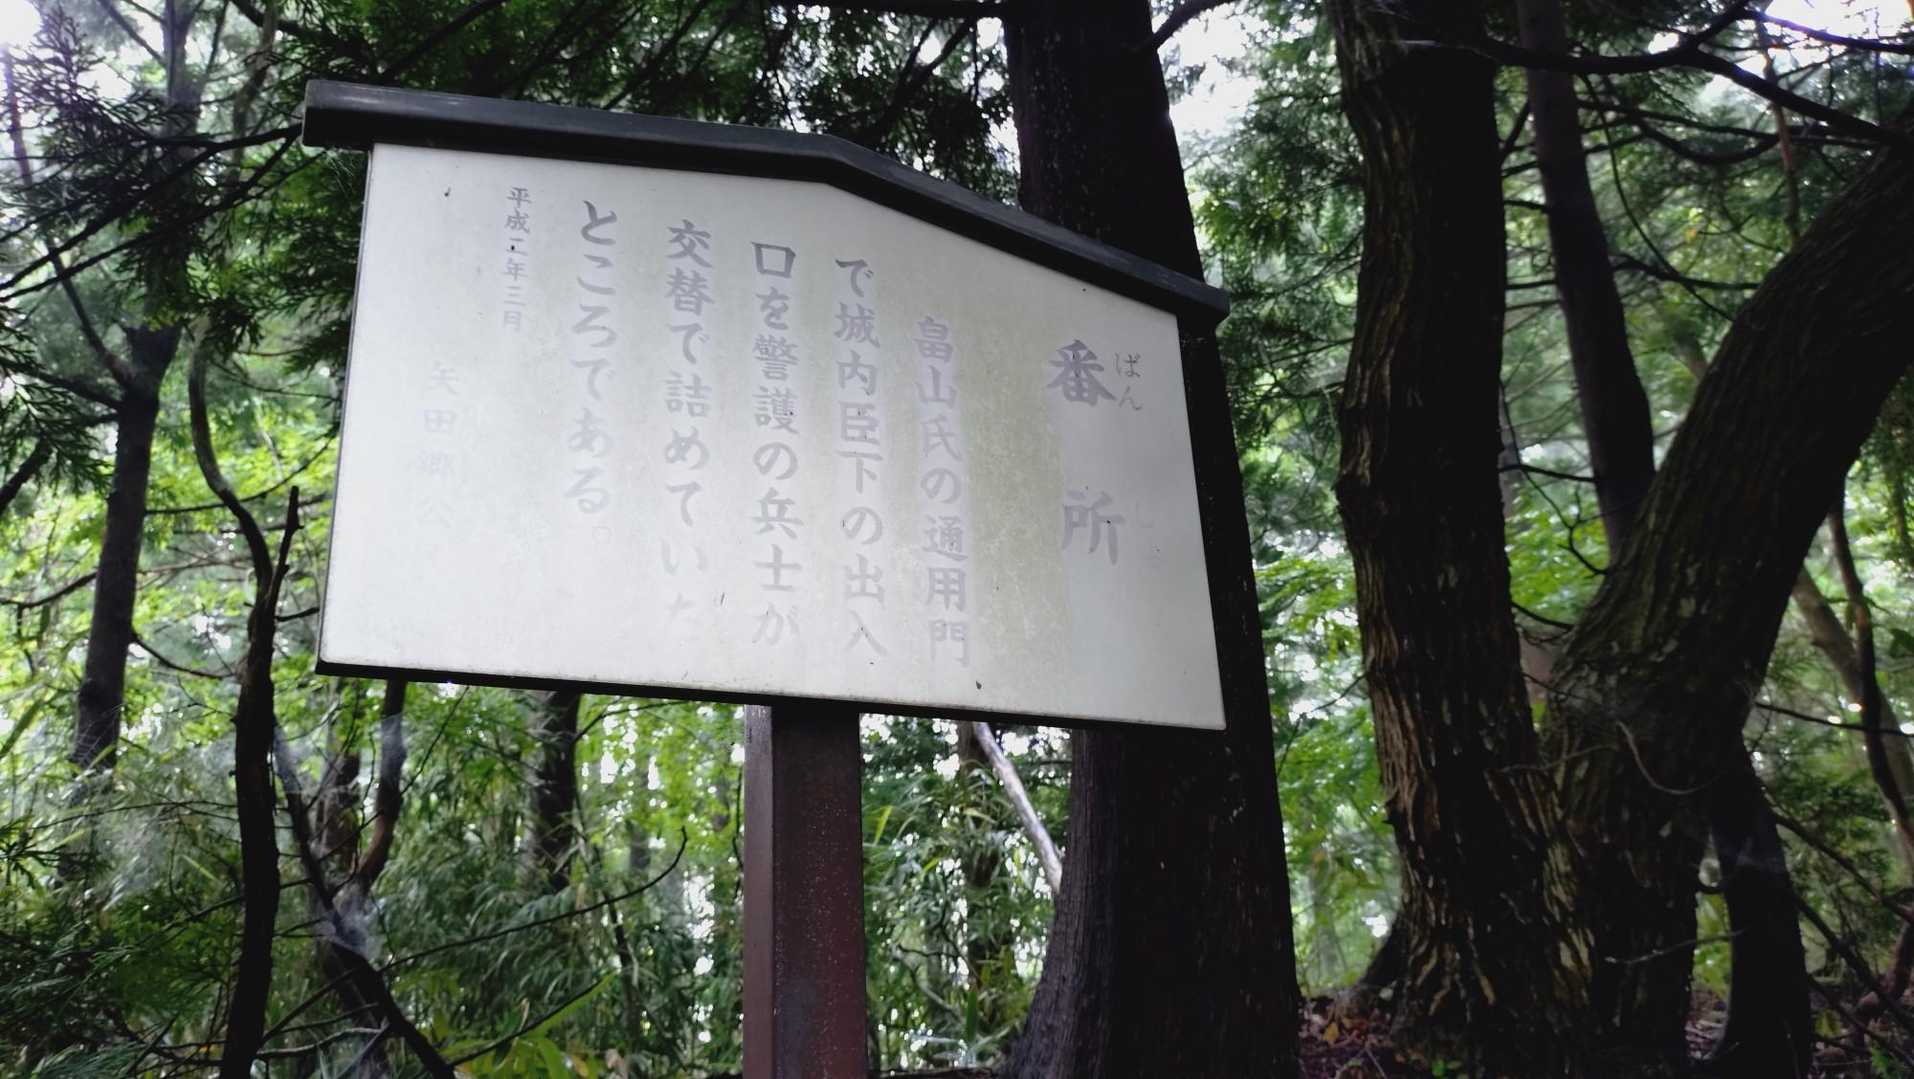 番所
ばん
畠山氏の通用門
で城内臣下の出入
口を警護の兵士が
交替で詰めていた
ところである。
平成二年三月
矢田郷公